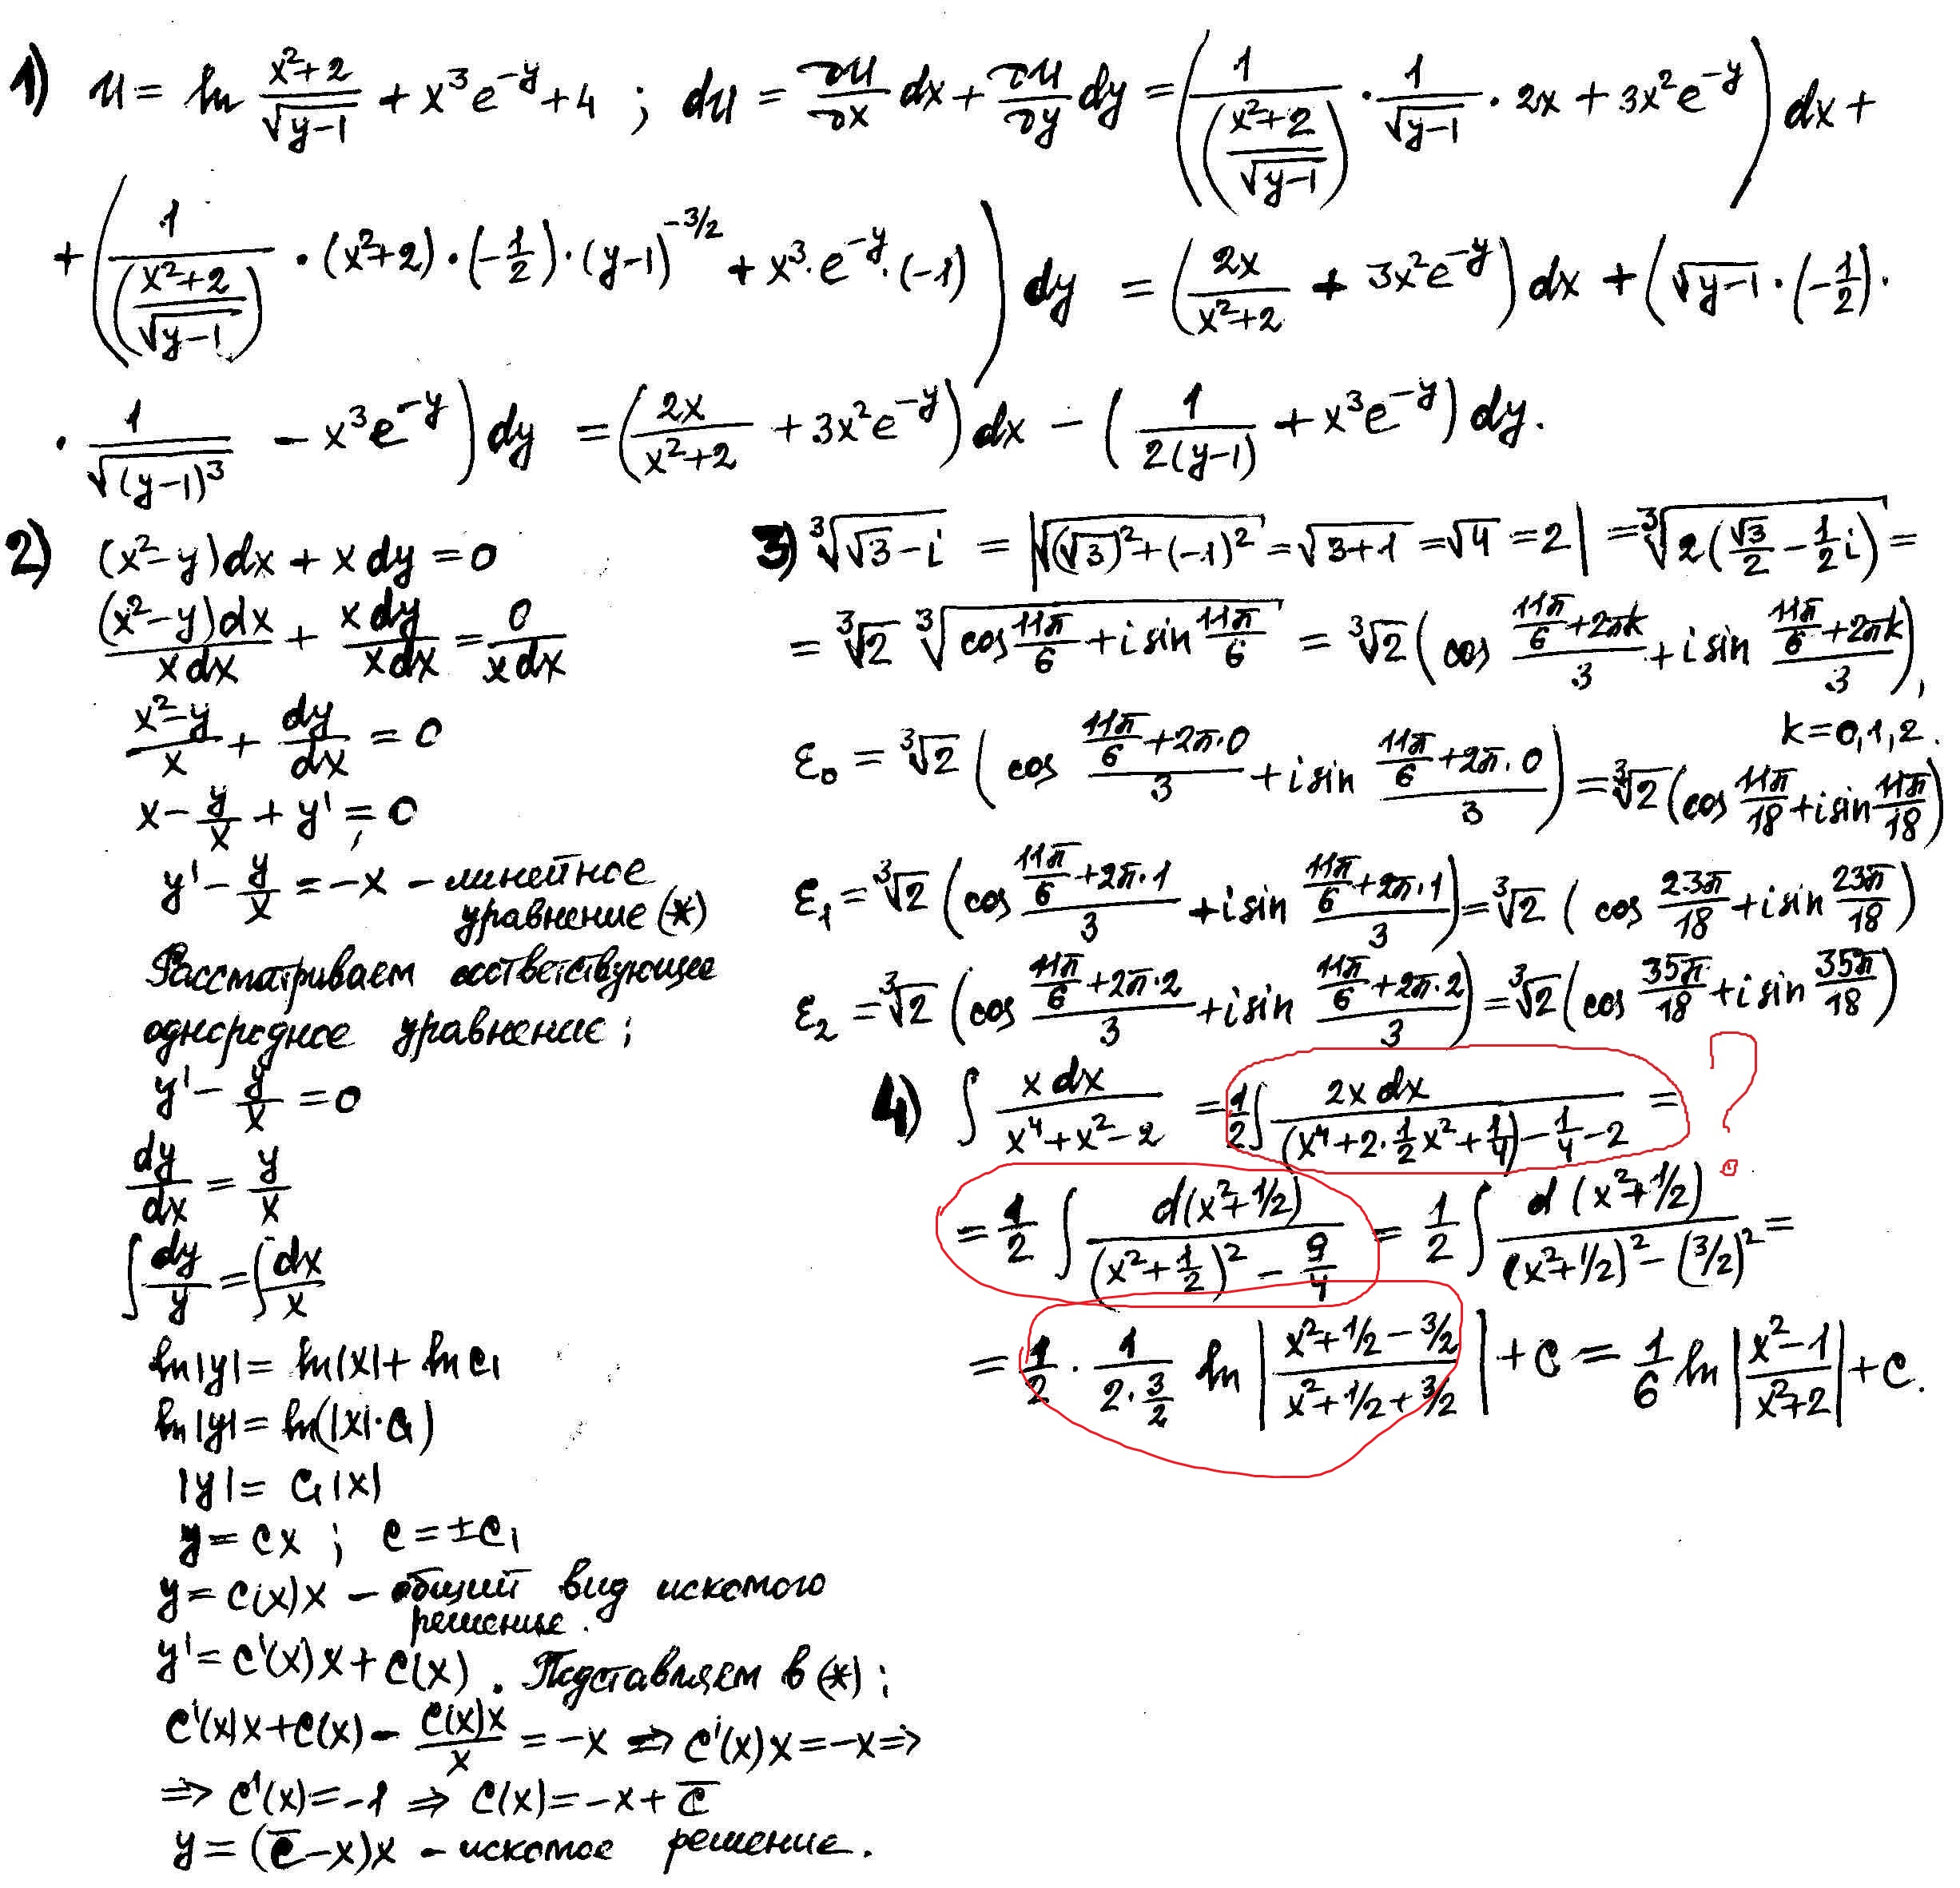 1) u = ln (x²+2)/√(y-1) + x³e^(-y) + 4 ; du = ∂u/∂x dx + ∂u/∂y dy = ( 1/((x²+2)/√(y-1)) · 1/√(y-1) · 2x + 3x²e^(-y) ) dx +
+ ( 1/((x²+2)/√(y-1)) · (x²+2) · (-1/2) · (y-1)^(-3/2) + x³ · e^(-y) · (-1) ) dy = ( 2x/(x²+2) + 3x²e^(-y) ) dx + ( √(y-1) · (-1/2) ·
· 1/√((y-1)³) - x³e^(-y) ) dy = ( 2x/(x²+2) + 3x²e^(-y) ) dx - ( 1/(2(y-1)) + x³e^(-y) ) dy.
2) (x²-y)dx + x dy = 0
(x²-y)dx/(x dx) + x dy/(x dx) = 0/(x dx)
(x²-y)/x + dy/dx = 0
x - y/x + y' = 0
y' - y/x = -x - линейное
уравнение (*)
Рассматриваем соответствующее
однородное уравнение:
y' - y/x = 0
dy/dx = y/x
∫ dy/y = ∫ dx/x
ln|y| = ln|x| + ln c₁
ln|y| = ln(|x|·c₁)
|y| = c₁|x|
y = cx ; c = ±c₁
y = c(x)x - общий вид искомого
решение.
y' = c'(x)x + c(x). Подставляем в (*) :
c'(x)x + c(x) - c(x)x/x = -x ⇒ c'(x)x = -x ⇒
⇒ c'(x) = -1 ⇒ c(x) = -x + c̅
y = (c̅ - x)x - искомое решение.
3) ∛(√3 - i) = |√((√3)² + (-1)²) = √(3+1) = √4 = 2| = ∛(2(√3/2 - 1/2 i)) =
= ∛2 ∛(cos 11π/6 + i sin 11π/6) = ∛2 ( cos (11π/6 + 2πk)/3 + i sin (11π/6 + 2πk)/3 ),
k = 0,1,2.
ε₀ = ∛2 ( cos (11π/6 + 2π·0)/3 + i sin (11π/6 + 2π·0)/3 ) = ∛2 ( cos 11π/18 + i sin 11π/18 )
ε₁ = ∛2 ( cos (11π/6 + 2π·1)/3 + i sin (11π/6 + 2π·1)/3 ) = ∛2 ( cos 23π/18 + i sin 23π/18 )
ε₂ = ∛2 ( cos (11π/6 + 2π·2)/3 + i sin (11π/6 + 2π·2)/3 ) = ∛2 ( cos 35π/18 + i sin 35π/18 )
4) ∫ x dx/(x⁴+x²-2) = 1/2 ∫ 2x dx/((x⁴+2·1/2 x²+1/4) - 1/4 - 2) = ?
= 1/2 ∫ d(x²+1/2)/((x²+1/2)² - 9/4) = 1/2 ∫ d(x²+1/2)/((x²+1/2)² - (3/2)²) =
= 1/2 · 1/(2·3/2) ln |(x²+1/2-3/2)/(x²+1/2+3/2)| + c = 1/6 ln |(x²-1)/(x²+2)| + c.